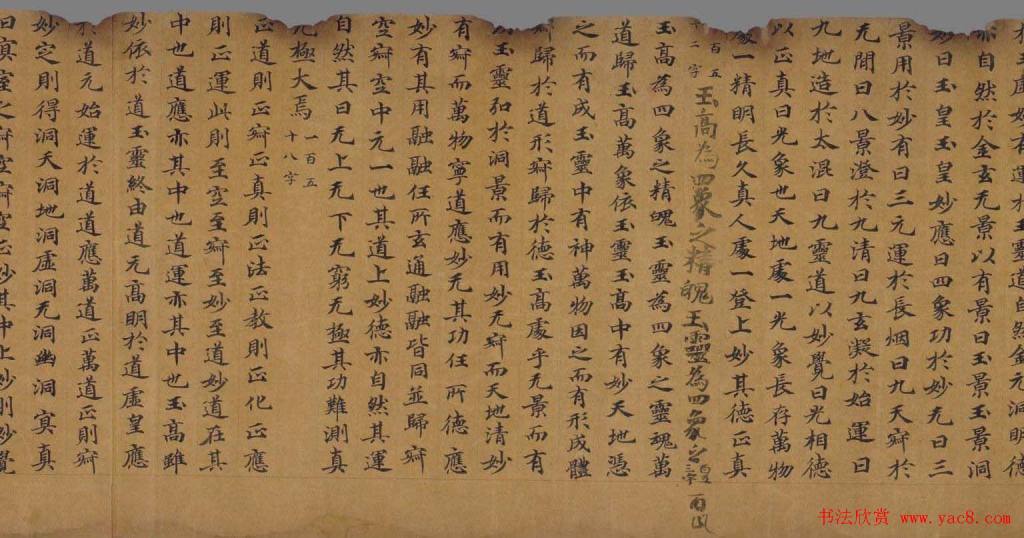 亦自然於金玄无景以有景曰玉景玉景洞
妙曰玉皇玉皇妙應曰四象功於妙无曰三
景用於妙有曰三元運於長烟曰九天寂於
无間曰八景澄於九清曰九玄凝於始運曰
九地造於太混曰九靈道以妙覺曰光相德
以正真曰光象也天地處一光象長存萬物
處一精明長久真人處一登上妙其德正真
百五
二字
玉高為四象之精魄玉靈為四象之
玉高為四象之精魄玉靈為四象之靈魂萬
道歸玉高萬象依玉靈玉高中有妙天地憑
之而有成玉靈中有神萬物因之而有形成體
寂歸於道形寂歸於德玉高處乎无景而有
玉靈弘於洞景而有用妙无寂而天地清妙
有寂而萬物寧道應妙无其功任所德應
妙有其用融融任所玄通融融皆同並歸寂
空寂空中元一也其道上妙德亦自然其運
自然其曰无上无下无窮无極其功難測真
无極大焉
一百五
十八字
正道則正寂正真則正法正教則正化正應
則正運此則至空至寂至妙至道妙道在其
中也道應亦其中也道運亦其中也玉高雖
妙依於道玉靈終由道元高明於道虛皇應
於道元始運於道道應萬道正萬道正則寂
妙空則得洞天洞地洞虛洞无洞幽洞寂真
書法欣赏 www.yac8.com